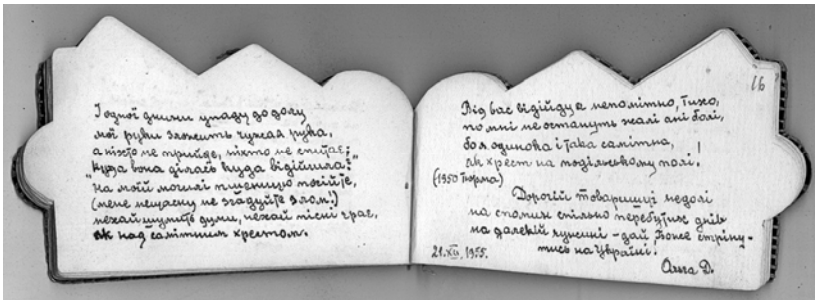 І одної днини упаду до долу
мої руки зложить чужая рука,
а ніхто не прийде, ніхто не спитає;
"куда вона ділась куда відійшла?"
На моїй могилі пшеницю посійте,
(мене нещасну не згадуйте злом!)
нехай шумить думи, нехай пісні грає,
як над самітним хрестом.
16
Від вас відійду я непомітно, тихо,
по мні не остануть жалі ані болі,
бо я одинока і така самітна,
як хрест на подільському полі!
(1950 Тюрма)
Дорогій товаришці недолі
на спомин спільно перебутих днів
на далекій чужині - дай Боже стріну-
тись на Україні!
21.XII.1955.
Ольга Д.